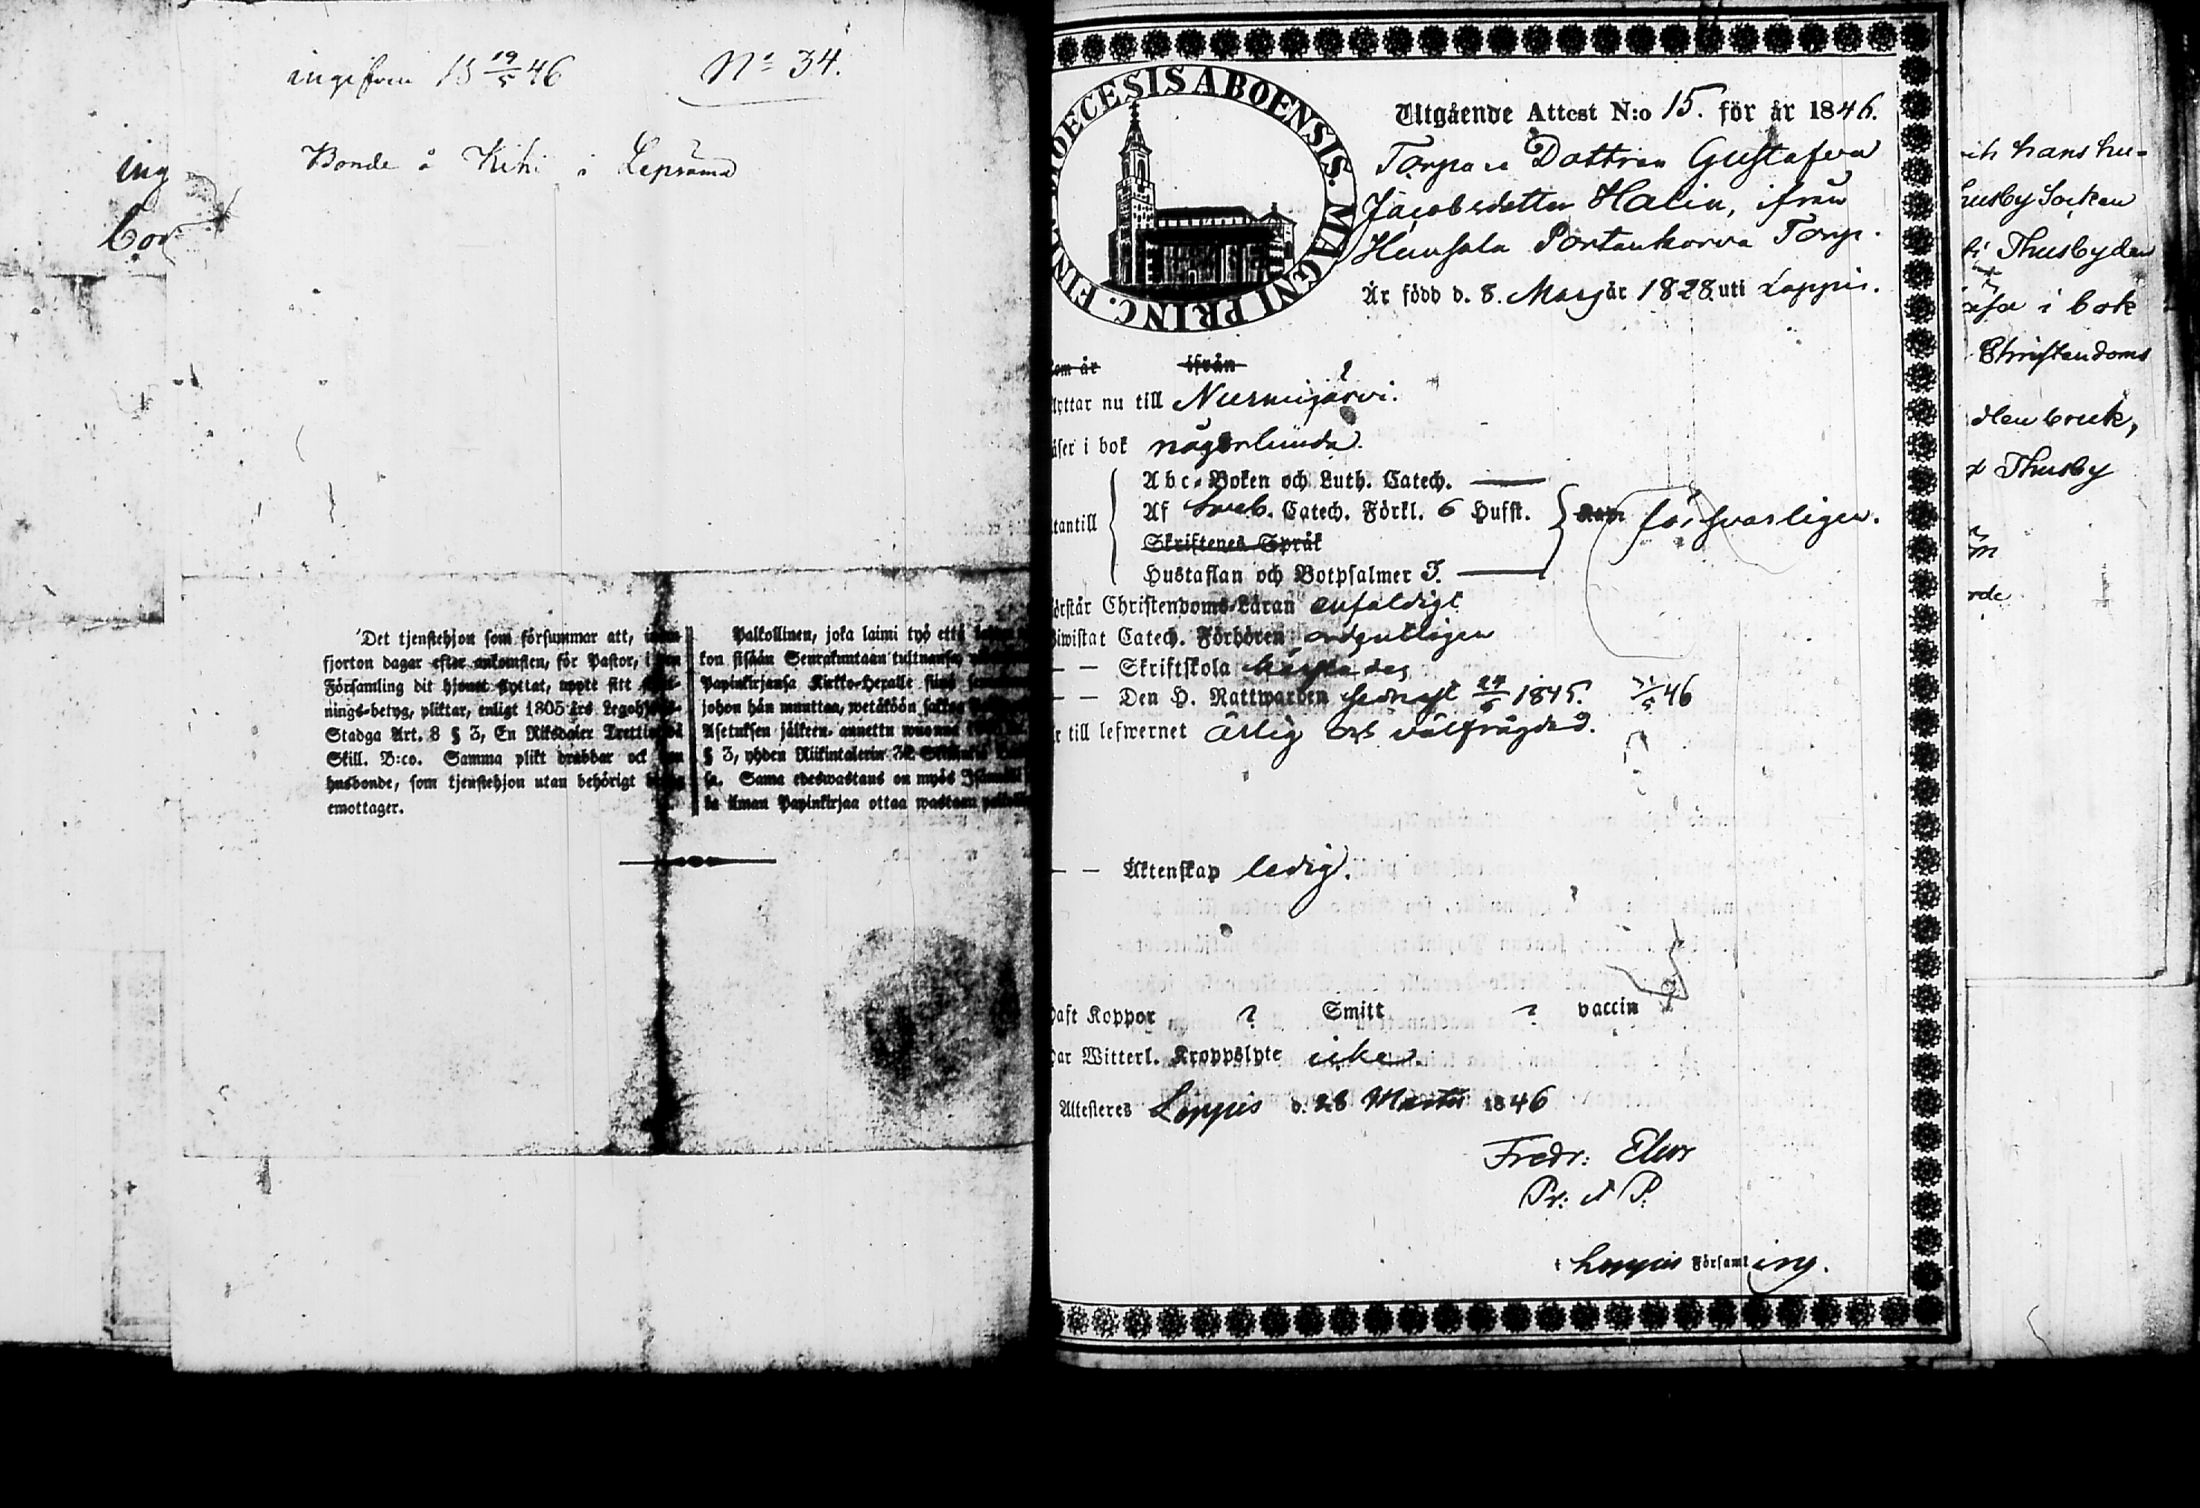 ingifven 18 19/5 46 No 34.
Bonde å Kihi i Lepsämä
ing
bor
Det tjenstehjon som försummar att, inom
fjorton dagar efter ankomsten, för Pastor, i den
Församling dit hjonet flyttat, uppte sitt
nings-betyg, pliktar, enligt 1805 års Legohjons-
Stadga Art. 8 § 3, En Riksdaler Trettiotvå
Skill. B:co. Samma plikt drabbar ock den
husbonde, som tjenstehjon utan behörigt betyg
emottager.
Palkollinen, joka laimi työ että
kon sisään Seurakuntaan tultuansa
Papinkirjansa Kirkko-Herralle siinä seurakunnassa
johon hän muuttaa, wetäköön sakkoa
Asetuksen jälkeen, annettu wuonna
§ 3, yhden Riikintalerin 32 Skillinkiä
sa. Sama edeswastaus on myös Isännällä
ka ilman Papinkirjaa ottaa wastaan
DIOECESIS ABOENSIS. MAGNI PRINC. FINL.
Utgående Attest N:o 15. för år 1846.
Torpare Dottren Gustafva
Jacobsdotter Halin, ifrån
Hunsala Portankorva Torp.
Är född d. 8. Mars år 1828 uti Loppis.
kom år ifrån
flyttar nu till Nurmijärvi.
läser i bok någorlunda.
Abc-Boken och Luth. Catech.
Af Sveb. Catech. Förkl. 6 Hufst.
utantill försvarligen.
Skriftenes Språk
Hustaflan och Botpsalmer 3.
förstår Christendoms-Läran enfaldigt
Biwistat Catech. Förhören ordentligen
— — Skriftskola
— — Den H. Nattwarden sednast 24/6 1845. 21/5 46
är till lefwernet ärlig och välfrägdad.
— — Äktenskap ledig.
haft Koppor ? Smitt ? vaccin
har Witterl. Kroppslyte icke.
Attesteres Loppis d. 28 Martii 1846
Fredr: Elers
Pr: d P.
i Loppis Församling.
och hans hu-
husby Socken
Thusby den
i bok
Christendoms
x Thusby